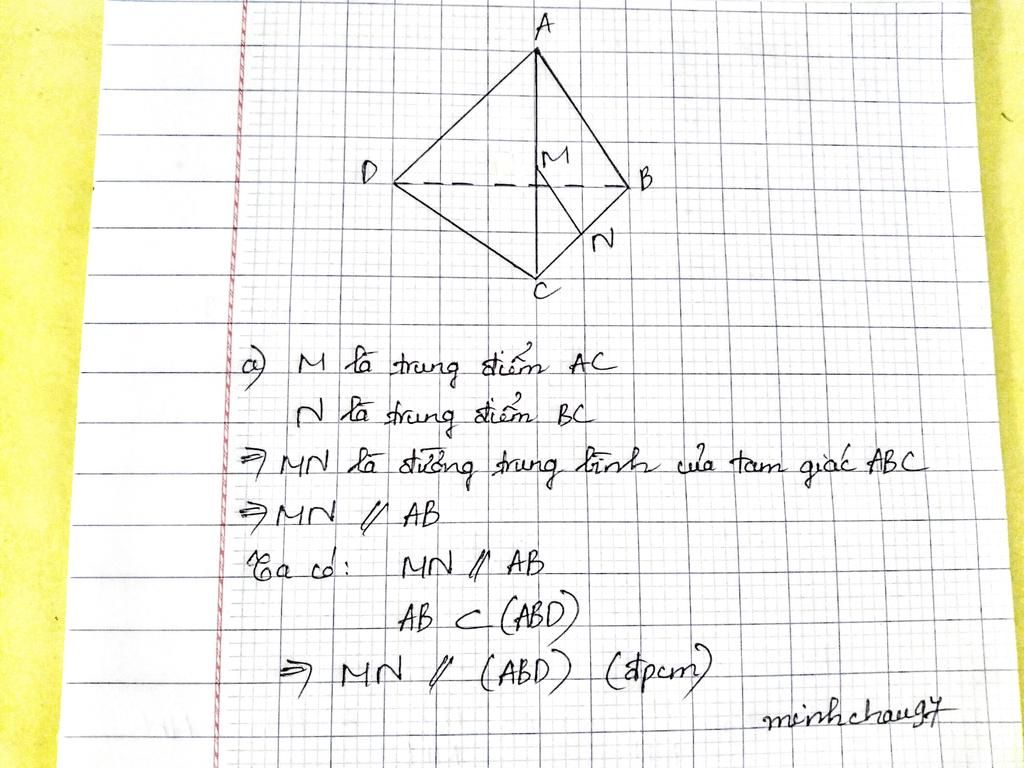 A
D
M
B
N
C
a) M là trung điểm AC
N là trung điểm BC
⇒ MN là đường trung bình của tam giác ABC
⇒ MN // AB
Ta có: MN // AB
AB ⊂ (ABD)
⇒ MN // (ABD) (đpcm)
minhchau97